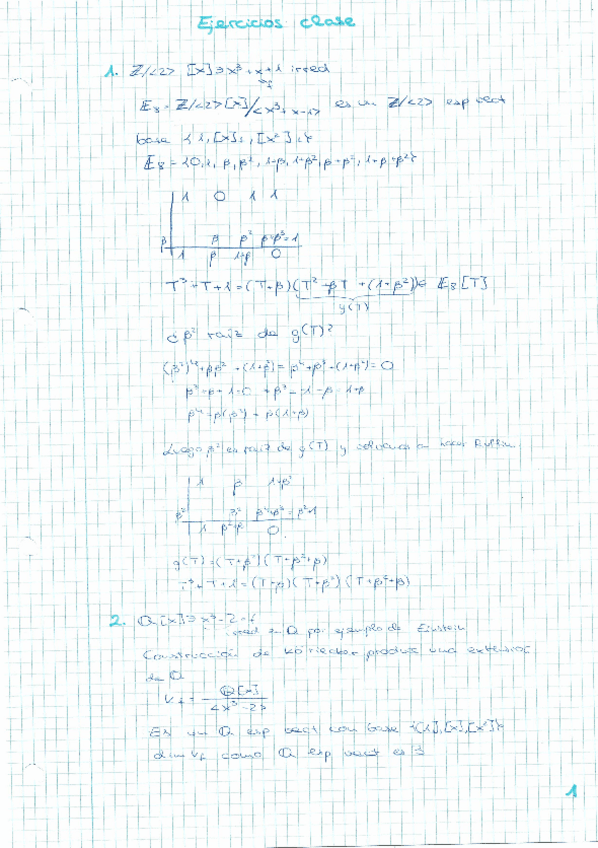 Ejercicios clase
1. Z/<2> [x] ∋ x³+x+1 irred
F₈ = Z/<2>[x]/<x³+x+1> es un Z/<2> esp vect
base {1, [x], [x²]}
F₈ = {0, 1, β, β², 1+β, 1+β², β+β², 1+β+β²}
1 0 1 1
β β β² β+β³=1
1 β 1+β² 0
T³+T+1 = (T+β)(T²+βT+(1+β²)) ∈ F₈[T]
g(T)
¿β² raíz de g(T)?
(β²)²+ββ²+(1+β²) = β⁴+β³+(1+β²) = 0
β³+β+1=0 β³ = -1-β = 1+β
β⁴ = β(β³) = β(1+β)
Luego β² es raíz de g(T) y volvemos a hacer Ruffini
1 β 1+β²
β² β² β⁴+β³ = β²+1
1 β²+β 0
g(T) = (T+β²)(T+β²+β)
T³+T+1 = (T+β)(T+β²)(T+β²+β)
2. Q[x] ∋ x³-2 = f
irred en Q por ejemplo de Einstein
Construcción de Kronecker produce una extensión
de Q
V_f = Q[x]/<x³-2>
Es un Q esp vect con base {[1],[x],[x²]}
dim V_f como Q esp vect es 3
1